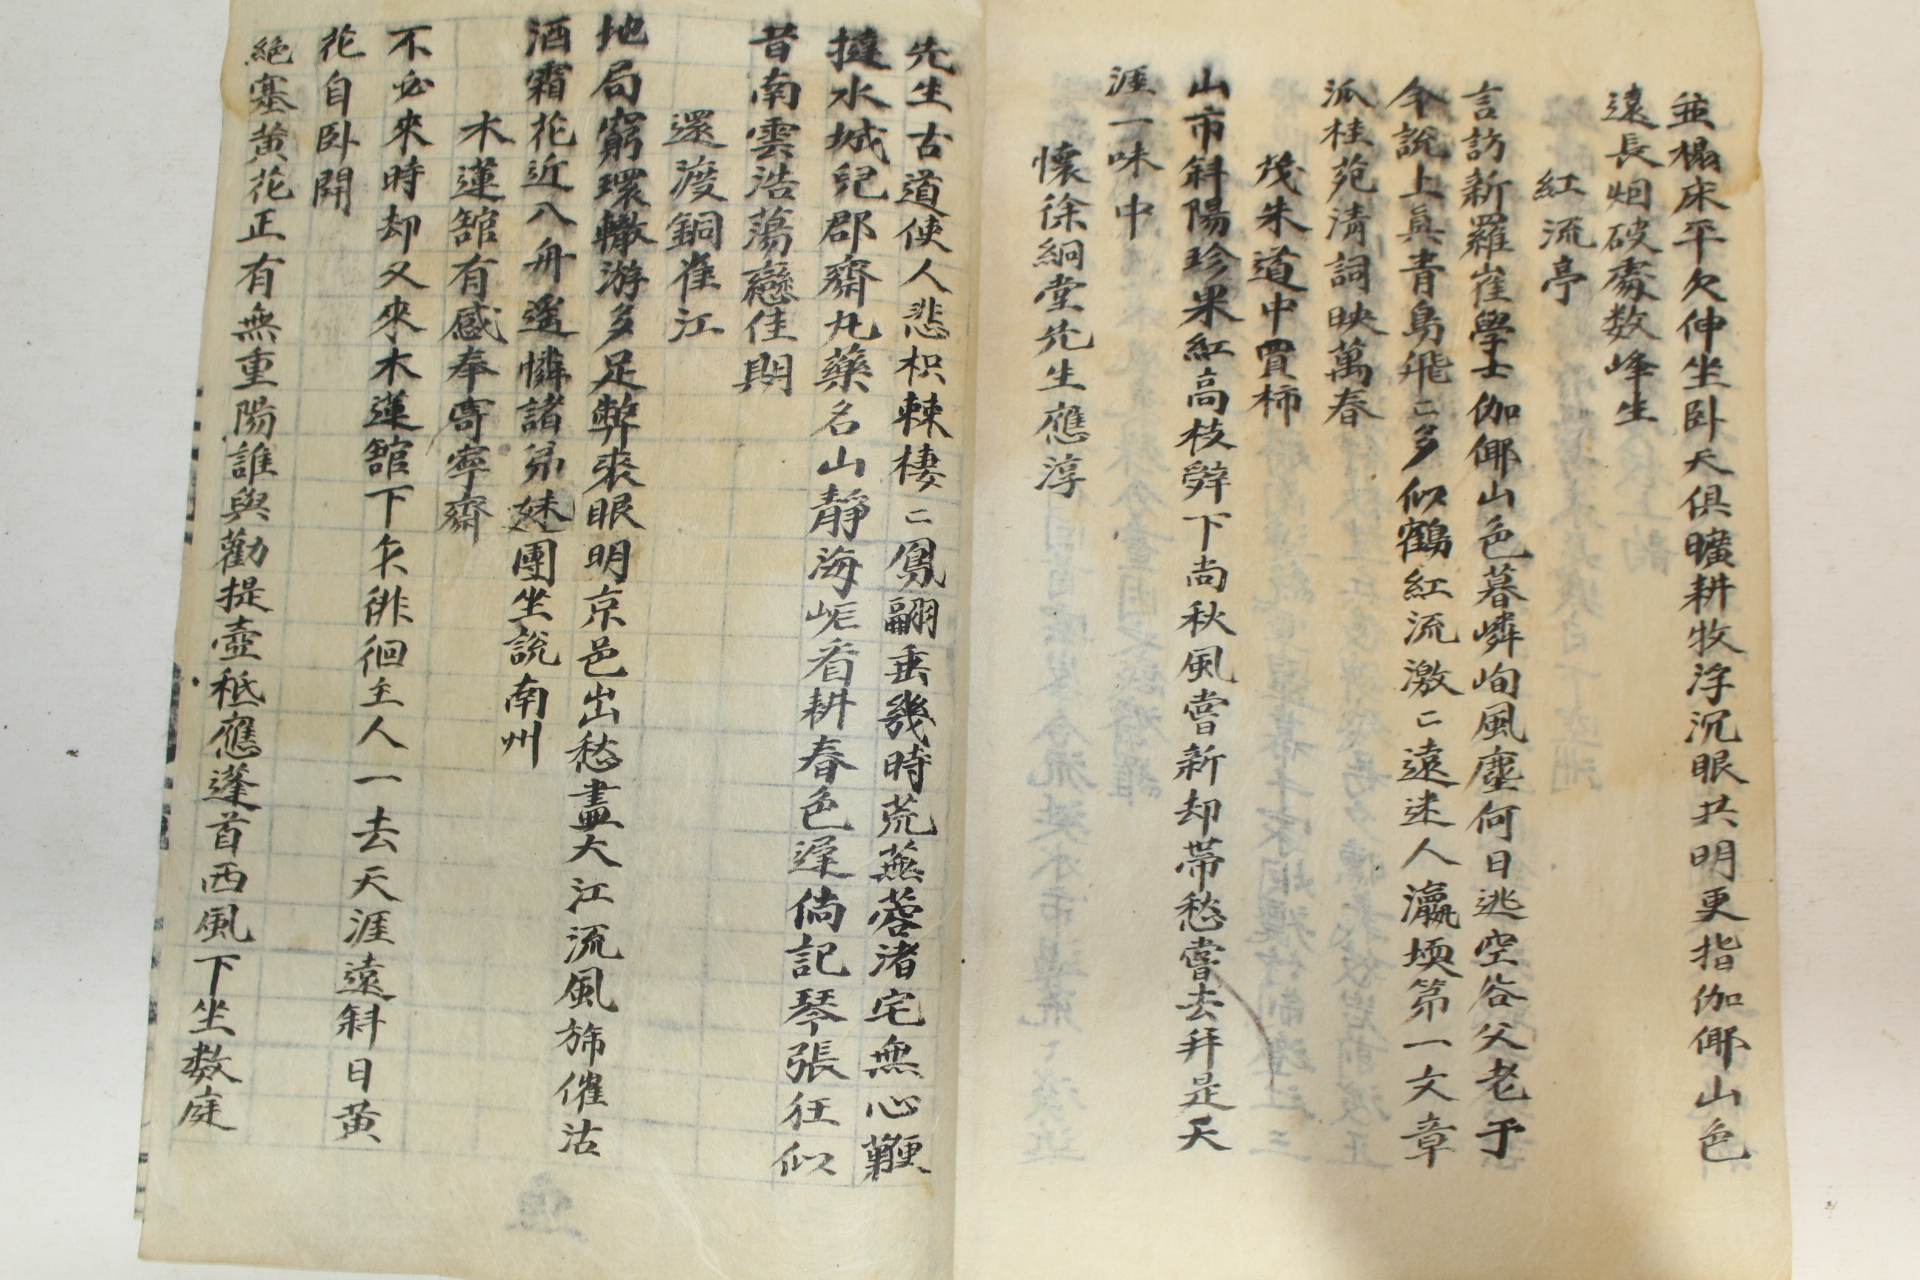 並榻床平欠伸坐卧天俱曠耕牧浮沉眼共明更指伽倻山色
遠長烟破處数峰生
紅流亭
言訪新羅崔學士伽倻山色暮嶙峋風塵何日逃空谷父老于
今說上眞青鳥飛〻多似鶴紅流激〻遠迷人瀛堧苐一文章
派桂苑清詞映萬春
茂朱道中買柿
山市斜陽珍果紅高枝辤下尚秋風嘗新却帶愁嘗去拜是天
涯一味中
懷徐絅堂先生應淳
先生古道使人悲枳棘棲〻鳳翮垂幾時荒蕪蓉渚宅無心鞭
撻水城兒郡齋丸藥名山靜海岯看耕春色遲倘記琴張狂似
昔南雲浩蕩戀佳期
還渡銅雀江
地局窮環轍游多足弊裘眼明京邑出愁盡大江流風斾催沽
酒霜花近八舟遥憐諸弟妹團坐說南州
木蓮舘有感奉寄寧齋
不必來時却又來木蓮舘下久徘徊主人一去天涯遠斜日黄
花自卧開
絶塞黄花正有無重陽誰與勸提壺秪應蓬首西風下坐数庭